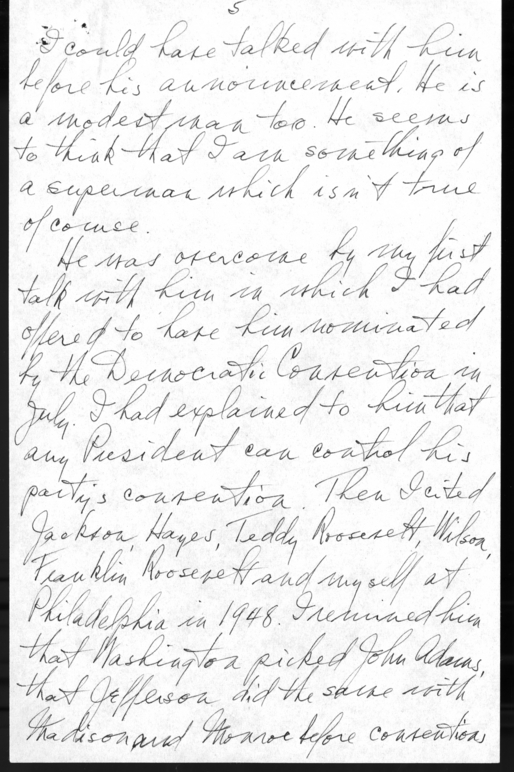 5
I could have talked with him
before his announcement. He is
a modest man too. He seems
to think that I am something of
a superman which isn't true
of course.
He was overcome by my first
talk with him in which I had
offered to have him nominated
by the Democratic Convention in
July. I had explained to him that
any President can control his
party's convention. Then I cited
Jackson, Hayes, Teddy Roosevelt, Wilson,
Franklin Roosevelt and myself at
Philadelphia in 1948. I remined him
that Washington picked John Adams,
that Jefferson did the same with
Madison and Monroe before conventions